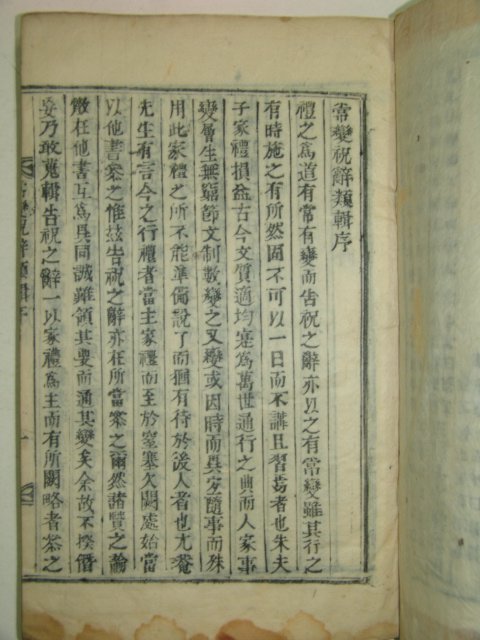 常變祝辭類輯序
禮之爲道有常有變而告祝之辭亦以之有常變雖其行之
有時施之有所然固不可以一日而不講且習焉者也朱夫
子家禮損益古今文質適均寔爲萬世通行之典而人家事
變層生無窮節文制數變之又變或因時而異定隨事而殊
用此家禮之所不能準備說了而猶有待於後人者也尤菴
先生有言今之行禮者當主家禮而至於窒塞欠闕處始當
以他書叅之惟玆告祝之辭亦在所當叅之爾然諸賢之論
散在他書互爲異同誠難領其要而通其變矣余故不揆僭
妄乃敢蒐輯告祝之辭一以家禮爲主而有所闕略者叅之
變祝辭類輯序